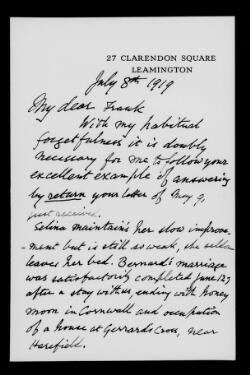 27 CLARENDON SQUARE
LEAMINGTON
July 8th 1919
My dear Frank
With my habitual
forgetfulness it is doubly
necessary for me to follow your
excellent example of answering
by return your letter of May 9,
just received.
Selina maintains her slow improve-
ment but is still so weak, she seldom
leaves her bed. Bernard's marriage
was satisfactorily completed June 12,
after a stay with us, ending with honey
moon in Cornwall and occupation
of a house at Gerrards Cross, near
Harefield.